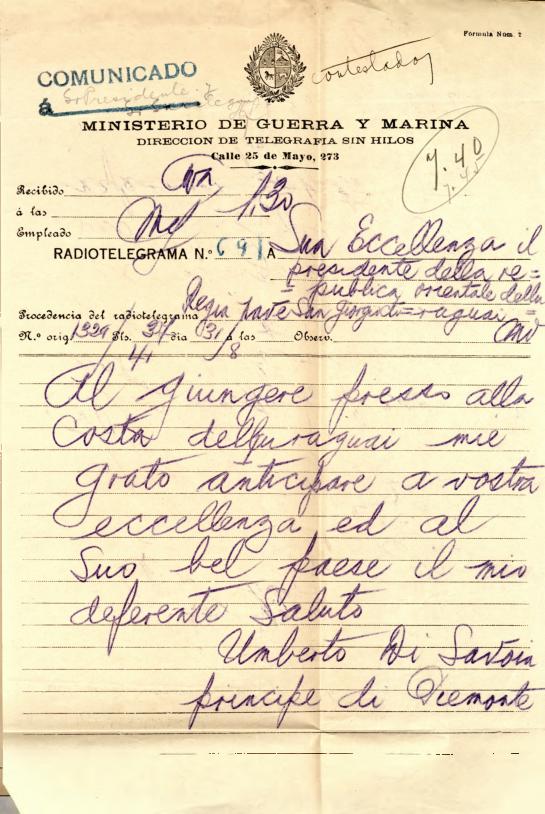 Fórmula Núm. 2
COMUNICADO
á Sr Presidente
contestado
MINISTERIO DE GUERRA Y MARINA
DIRECCION DE TELEGRAFIA SIN HILOS
Calle 25 de Mayo, 273
7.40
7.45
Recibido
á las 1,30
Empleado
RADIOTELEGRAMA N.º 691 A Sua Eccellenza il
presidente della re=
=publica orientale della
Procedencia del radiotelegrama Regia nave San Giorgio =raguai=
N.º orig 1329 Pls. 37/41 día 31/8 á las Observ. Mvd
Al giungere presso alla
Costa dell'uraguai mie
grato anticipare a vostra
eccellenza ed al
Suo bel paese il mio
deferente Saluto
Umberto Di Savoia
principe di Piemonte